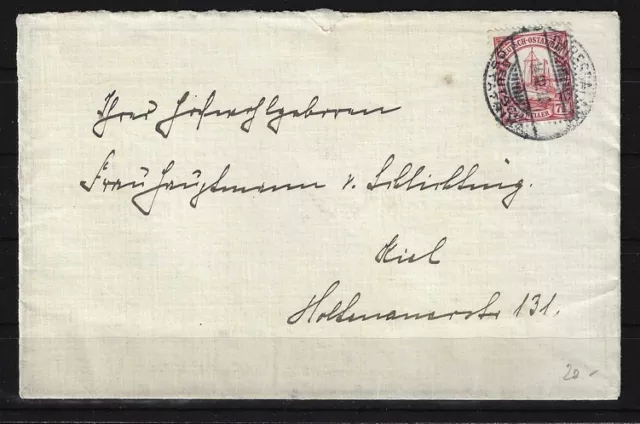 DEUTSCH-OSTAFRIKA
7½ HELLER
Ihrer Hochwohlgeboren
Frau Hauptmann v. Schlichting.
Kiel
Holtenauerstr 131.
20.-